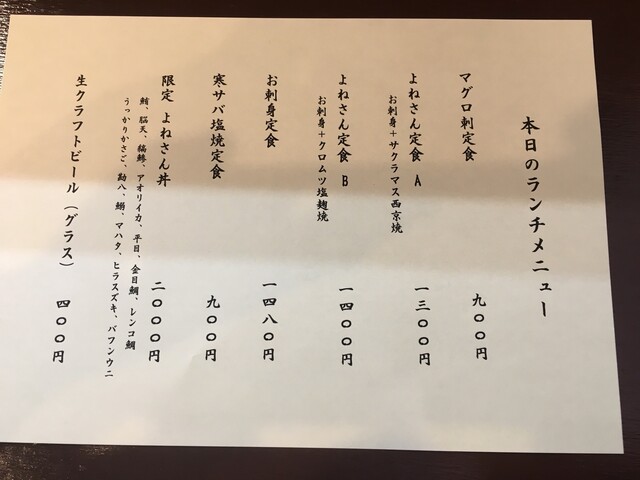 本日のランチメニュー
マグロ刺定食 九〇〇円
よねさん定食 A 一三〇〇円
お刺身＋サクラマス西京焼
よねさん定食 B 一四〇〇円
お刺身＋クロムツ塩麹焼
お刺身定食 一四八〇円
寒サバ塩焼定食 九〇〇円
限定 よねさん丼 二〇〇〇円
鮪、脳天、縞鯵、アオリイカ、平目、金目鯛、レンコ鯛
うっかりかさご、勘八、鰯、マハタ、ヒラスズキ、バフンウニ
生クラフトビール（グラス） 四〇〇円